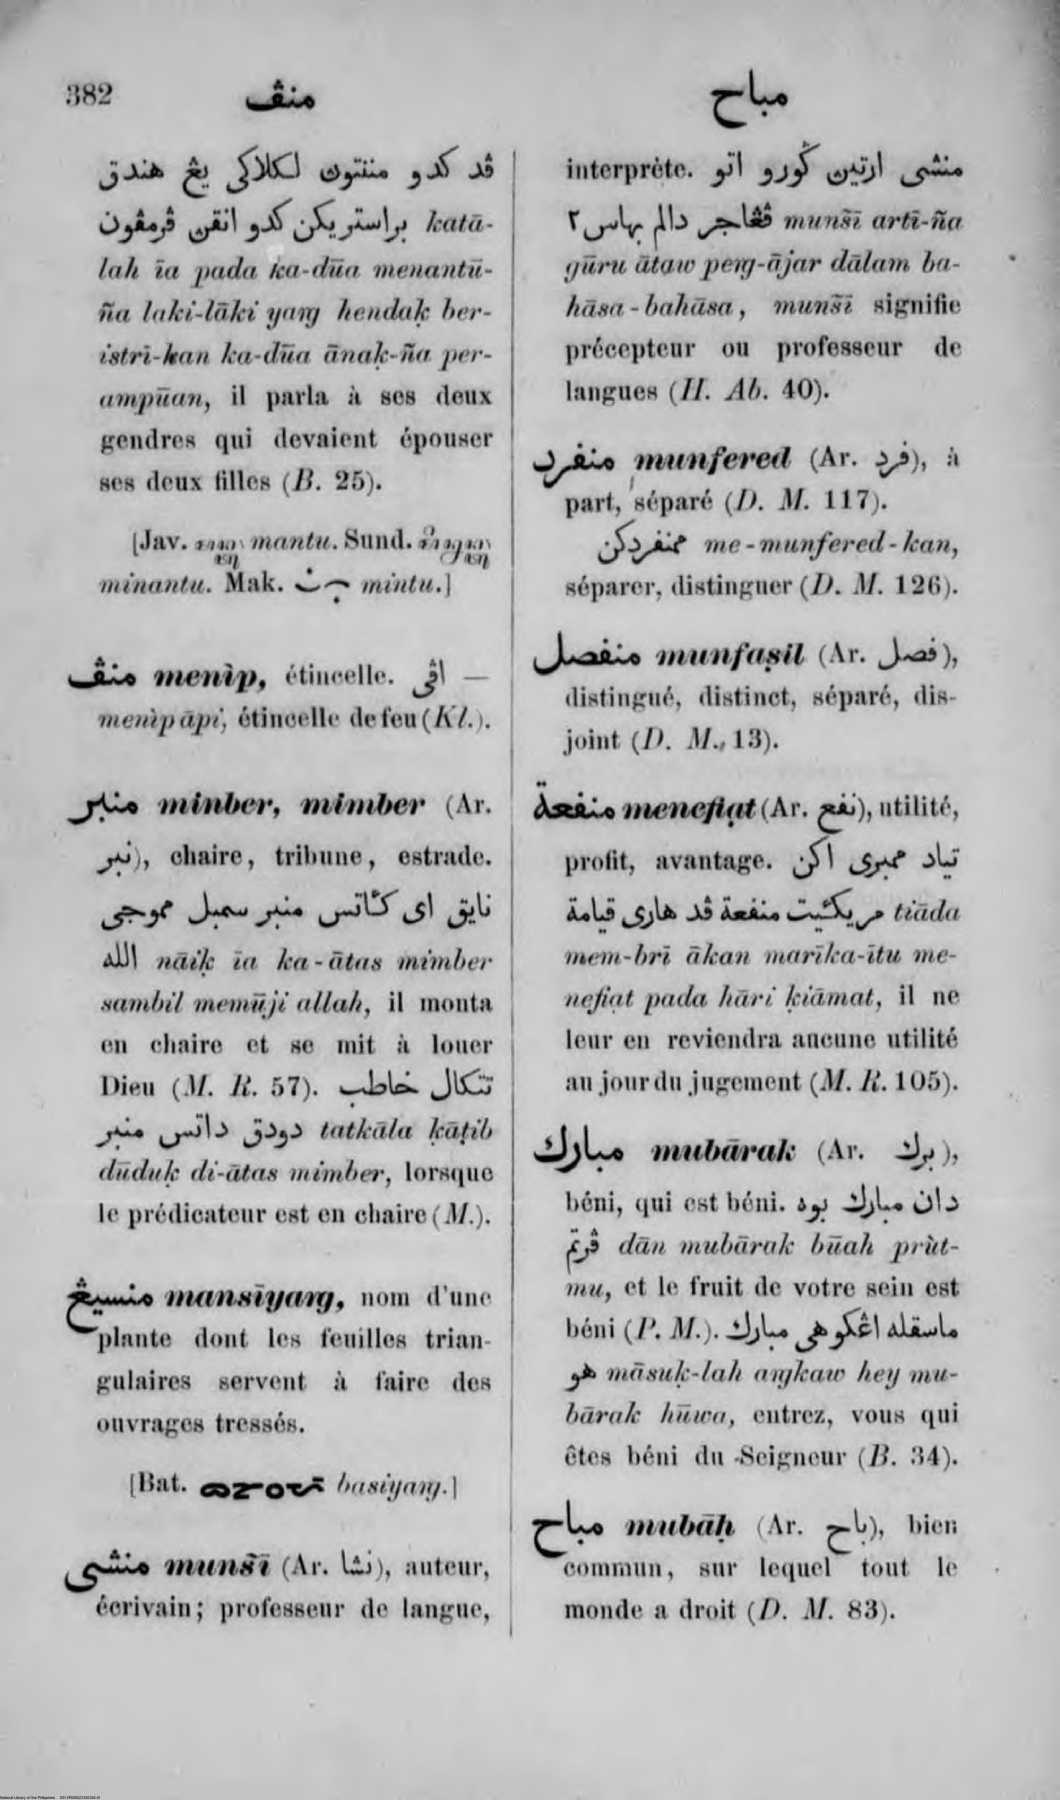 382
منڤ
مباح
ڤد کدو مننتون لکلاکی يڠ هندق
براستريکن کدو انقن ڤرمڤون katā-
lah īa pada ka-dūa menantū-
ña laki-lāki yaṅg hendaḳ ber-
istrī-kan ka-dūa ānaḳ-ña per-
ampūan, il parla à ses deux
gendres qui devaient épouser
ses deux filles (B. 25).
[Jav. mantu. Sund.
minantu. Mak. mintu.]
منڤ menìp, étincelle. اڤی —
menìp āpi, étincelle de feu (Kl.).
منبر minber, mimber (Ar.
نبر), chaire, tribune, estrade.
نايق ای کأتس منبر سمبل مموجی
الله nāiḳ īa ka-ātas mimber
sambil memūji allah, il monta
en chaire et se mit à louer
Dieu (M. R. 57). تتکال خاطب
دودق داتس منبر tatkāla ḳāṭib
dūduḳ di-ātas mimber, lorsque
le prédicateur est en chaire (M.).
منسيڠ mansīyaṅg, nom d'une
plante dont les feuilles trian-
gulaires servent à faire des
ouvrages tressés.
[Bat. basiyaṅg.]
منشی munšī (Ar. نشا), auteur,
écrivain; professeur de langue,
interprète. منشی ارتين ڬورو اتو
ڤڠاجر دالم بهاس٢ munšī artī-ña
gūru ātaw peṅg-ājar dālam ba-
hāsa-bahāsa, munšī signifie
précepteur ou professeur de
langues (H. Ab. 40).
منفرد munfered (Ar. فرد), à
part, séparé (D. M. 117).
ممنفردکن me-munfered-kan,
séparer, distinguer (D. M. 126).
منفصل munfaṣil (Ar. فصل),
distingué, distinct, séparé, dis-
joint (D. M. 13).
منفعة menefiạt (Ar. نفع), utilité,
profit, avantage. تياد ممبری اکن
مريکئيت منفعة ڤد هاری قيامة tiāda
mem-brī ākan marīka-ītu me-
nefiạt pada hāri ḳiāmat, il ne
leur en reviendra aucune utilité
au jour du jugement (M. R. 105).
مبارك mubārak (Ar. برك),
béni, qui est béni. دان مبارك بوه
ڤرتم dān mubārak būah prùt-
mu, et le fruit de votre sein est
béni (P. M.). ماسقله اڠکوهی مبارك
هو māsuḳ-lah aṅgkaw hey mu-
bārak hūwa, entrez, vous qui
êtes béni du Seigneur (B. 34).
مباح mubāḥ (Ar. باح), bien
commun, sur lequel tout le
monde a droit (D. M. 83).